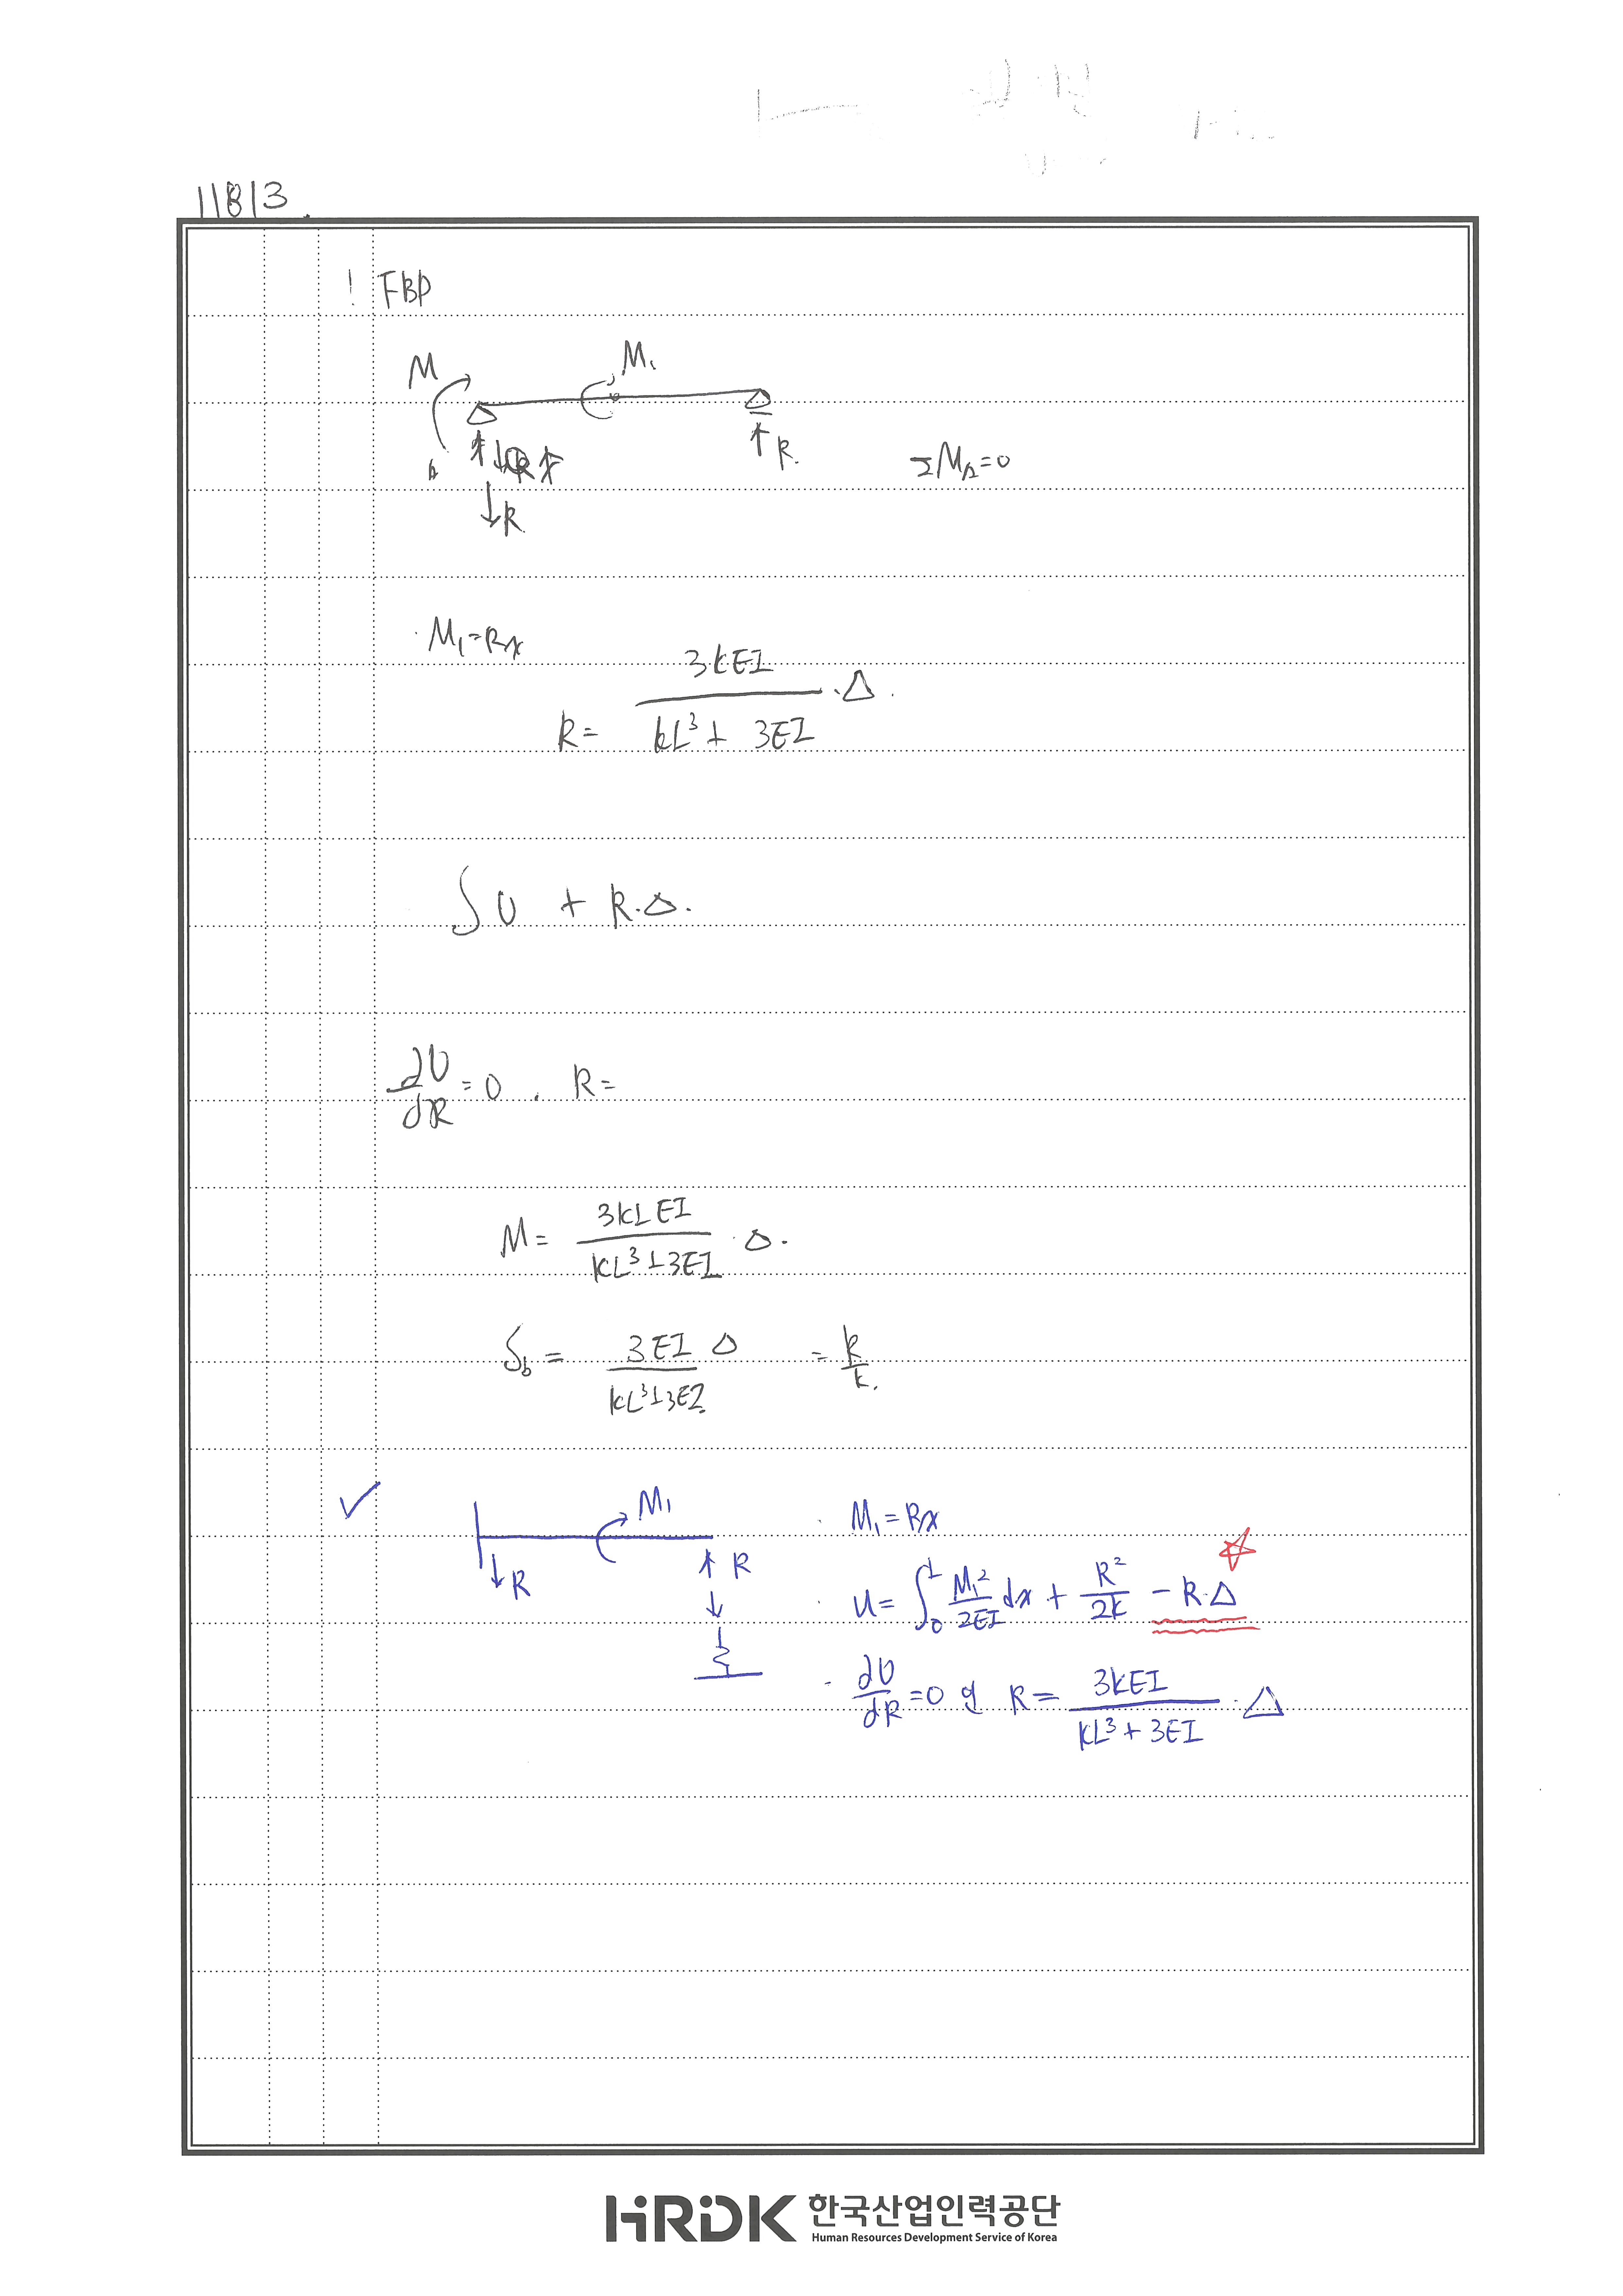 11813.
! FBD
M M₁
R R. ΣM_A=0
↓R
· M₁=Rx
R= 3kEI / kL³+ 3EI · Δ.
∫U + R·Δ.
∂U/∂R =0 . R=
M= 3kLEI / kL³+3EI · Δ.
δb = 3EI Δ / kL³+3EI = R/k.
✓ M₁ · M₁=Rx
↓R ↑R · U= ∫₀ᴸ M₁²/2EI dx + R²/2k − R·Δ ☆
· ∂U/∂R =0 ; R= 3kEI / kL³+3EI · Δ
HRDK 한국산업인력공단
Human Resources Development Service of Korea